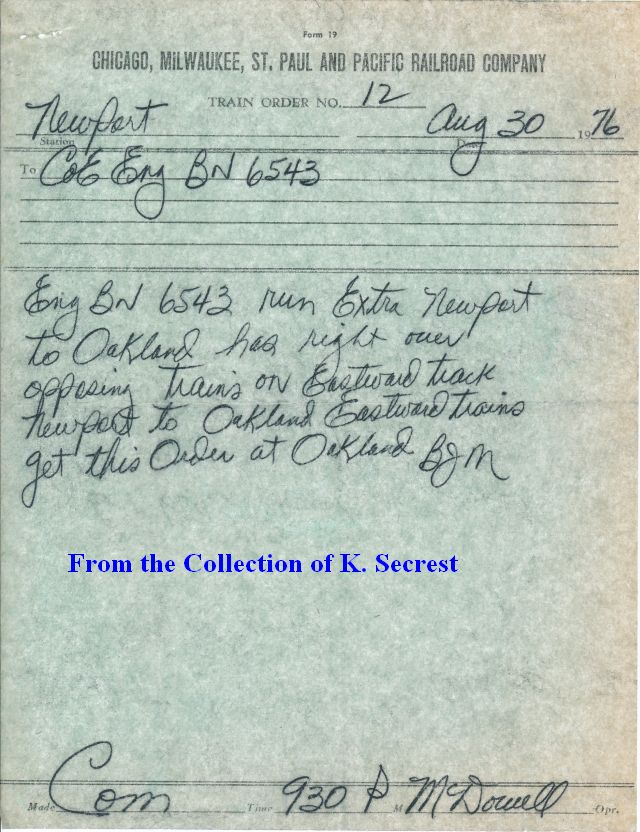 Form 19
CHICAGO, MILWAUKEE, ST. PAUL AND PACIFIC RAILROAD COMPANY
TRAIN ORDER NO. 12
Newport Aug 30 1976
Station Date
To C&E Eng BN 6543
Eng BN 6543 run Extra Newport
to Oakland has right over
opposing trains on Eastward track
Newport to Oakland Eastward trains
get this Order at Oakland BJM
From the Collection of K. Secrest
Made Com Time 930 P M McDowell Opr.